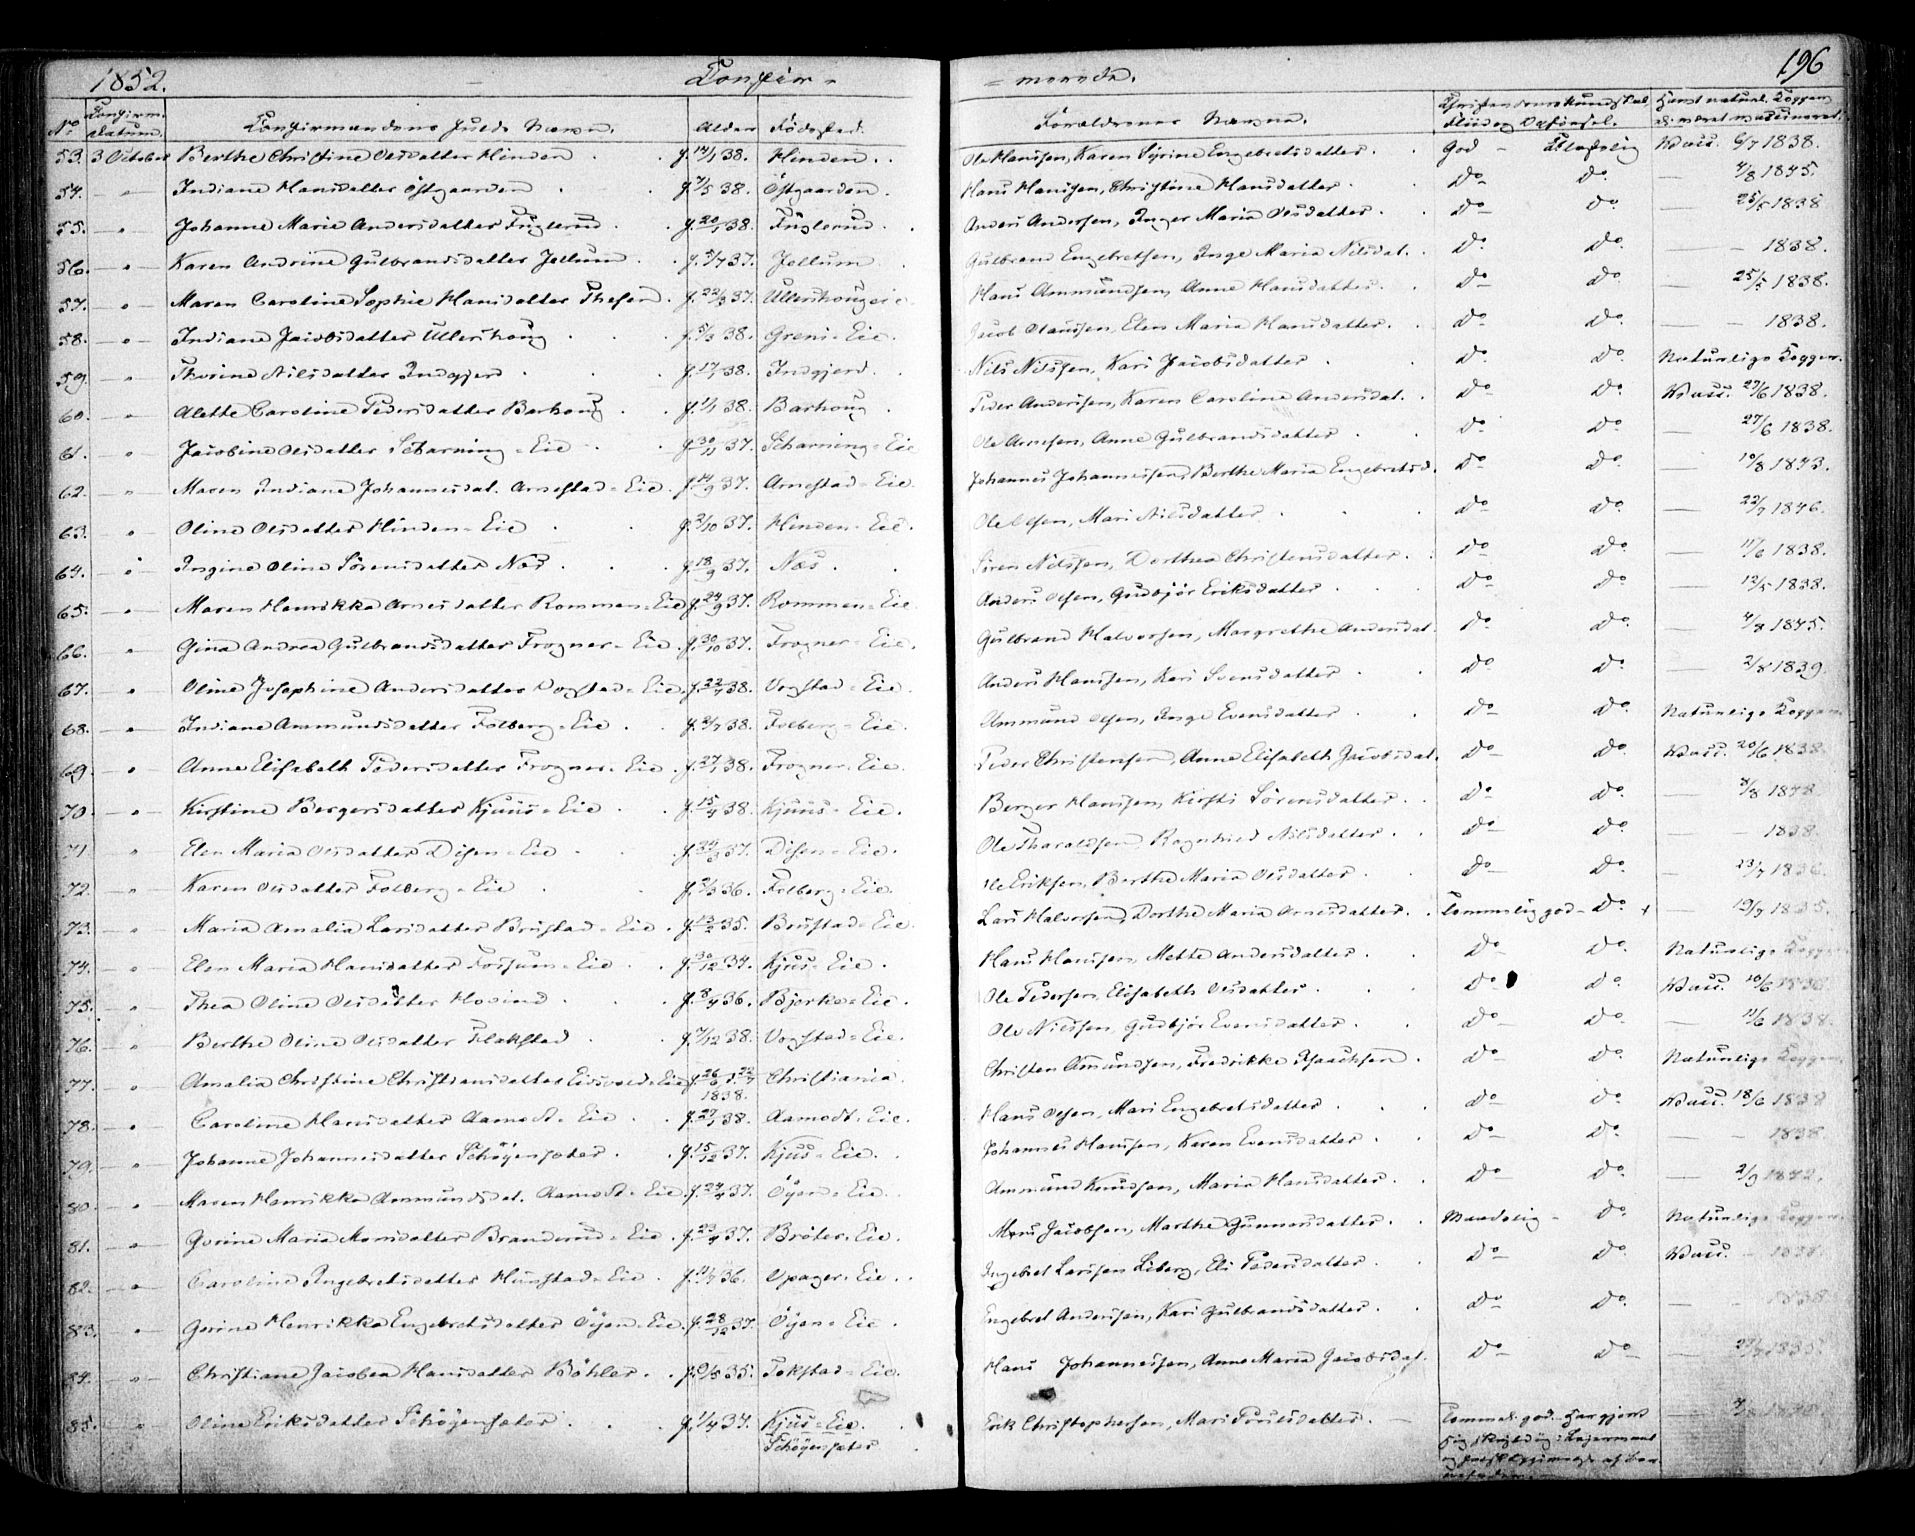 1852. Confir-
= manda. 196
No Confirm. Datum. Confirmandens fulde Navn. Alder Födested. Forældrenes Navne. Christendomskundskab Flid og Opförsel. Havt naturl. Kopper el. været vaccineret.
53. 3 October Berthe Christine Olsdatter Hinden f. 14/1 38. Hinden. Ole Hansen, Karen Sÿrine Engebretsdatter. God - Vac. 6/7 1838.
54. - " - Indiane Hansdatter Östgaarden f. 7/5 38. Östgaarden. Hans Hansen, Christine Hansdatter. do do. - 4/8 1845.
55. - " - Johanne Marie Andersdatter Fuglerud f. 20/1 38. Fuglerud. Anders Andersen, Inger Maria Olsdatter. do do. - 25/5 1838
56. - " - Karen Andrine Gulbrandsdatter Jellum f. 5/7 37. Jellum Gulbrand Engebretsen, Inge Maria Nilsdat. do do. - - 1838.
57. " Maren Caroline Sophie Hansdatter f. 22/3 37. Hans Ammundsen, Anne Hansdatter. do do. - 25/5 1838.
58. - " - Indiane Jacobsdatter Ullershoug f. 5/3 38. Greni-Eie. Jacob Olaussen, Elen Maria Hansdatter. do do. - - 1838.
59. " Thorine Nilsdatter Indgjerd f. 17/1 38. Indgjerd. Nils Nilssen, Kari Jacobsdatter do do. Naturlige Kopper.
60. " Alette Caroline Pedersdatter Barhoug f. 1/1 38. Barhoug Peder Andersen, Karen Caroline Andersdat. do do. Vacc. 27/6 1838.
61. - " - Jacobine Olsdatter Scharning-Eie f. 30/11 37. Scharning-Eie Ole Arnesen, Anne Gulbrandsdatter do do. - 27/6 1838.
62. - " - Maren Indiane Johannesdat. Arnestad-Eie. f. 14/9 37. Arnestad-Eie. Johannes Johannessen, Berthe Maria Engebretsd. do do. - 10/8 1843.
63. - " - Oline Olsdatter Hinden-Eie f. 2/10 37. Hinden-Eie. Ole Olsen, Mari Nilsdatter do do. - 22/7 1846.
64. - " - Ingine Oline Sörensdatter Næs f. 18/9 37. Næs. Sören Nilssen, Dorthea Christensdatter. do do. - 11/6 1838.
65. - " - Maren Henrikka Arnesdatter Rommen-Eie f. 24/9 37. Rommen-Eie. Anders Olsen, Gudbjör Eriksdatter do do. - 12/5 1838.
66. " Gina Andrea Gulbrandsdatter Frogner-Eie. f. 30/10 37. Frogner-Eie. Gulbrand Halvorsen, Margrethe Andersdat. do do. - 4/8 1845
67. " Oline Josephine Andersdatter Vogstad-Eie. f. 22/4 38. Vogstad-Eie. Anders Hansen, Kari Svensdatter do do. - 2/8 1839.
68. - " - Indiane Ammundsdatter Folberg-Eie f. 2/7 38. Folberg-Eie. Ammund Olsen, Inge Evensdatter do do. Naturlige Kopper.
69. " Anne Elisabeth Pedersdatter Frogner-Eie. f. 27/1 38. Frogner-Eie. Peder Christensen, Anne Elisabeth Jacobsdat. do do. Vacc. 20/6 1838
70. - " - Kirstine Bergersdatter Kjuus-Eie f. 15/4 38. Kjuus-Eie. Berger Hansen, Kirsti Sörensdatter. do do. - 1/8 1848
71 " Elen Maria Olsdatter Disen-Eie 37. Disen-Eie. Ole Tharaldsen, Ragnhild Nilsdatter. do do. - - 1838.
72. - " - Karen Olsdatter Folberg-Eie f. 2/3 36. Folberg-Eie. Ole Eriksen, Berthe Maria Olsdatter. do do. - 23/7 1836.
73. - " - Maria Amalia Larsdatter Brustad-Eie. f. 13/2 35. Brustad-Eie. Lars Halvorsen, Dorthe Maria Arnesdatter. Temmelig god - do. + - 19/7 1835.
74. - " - Elen Maria Hansdatter Fossum-Eie. f. 30/12 34. Kjus-Eie. Hans Hansen, Mette Andersdatter. do do. Naturlige Kopper
75. - " - Thea Oline Olsdatter Hovind f. 8/4 36. Bjerke-Eie. Ole Pedersen, Elisabeth Olsdatter. do do. Vacc. 10/6
76. - " - Berthe Oline Olsdatter Flakstad f. 7/12 38. Vogstad-Eie. Ole Nielsen, Gudbjör Evensdatter. do do. - 11/6 1838.
77. - " - Amalia Christine Christiansdatter Eidsvold-Eie 1838. Christiania. Christen Amundsen, Fredrikke Isaachsen. do do. Naturlige Kopper.
78. - " - Caroline Hansdatter Aamodt-Eie. f. 27/1 38. Aamodt-Eie. Hans Olsen, Mari Engebretsdatter do do. Vacc. 18/6 1838
79. - " - Johanne Johannesdatter Schöyensæter. f. 15/12 37. Kjus-Eie. Johannes Hansen, Karen Evensdatter do do. - - 1838
80. - " - Maren Henrikka Ammundsdat. Aamodt-Eie. f. 24/4 37. Öÿen-Eie. Ammund Knudsen, Maria Hansdatter. do do. - 2/9 1842.
81. - " - Gorine Maria Monsdatter Branderud-Eie. f. 23/4 37. Bröter-Eie. Mons Jacobsen, Marthe Gunnersdatter. Maadelig - do. Naturlige Kopper.
82. - " - Caroline Ingebretsdatter Hunstad-Eie. f. 11/7 36. Opager-Eie. Ingebret Larssen Liberg, Eli Pedersdatter do do. Vacc. - 1838.
83. - " - Gorine Henrikke Engebretsdatter Öÿen-Eie. f. 28/12 37. Öÿen-Eie. Engebret Andersen, Kari Gulbrandsdatter. do do. - - 1838
84. - " - Christiane Jacobea Hansdatter Böhler. 35. Tokstad-Eie. Hans Johannessen, Anne Maria Jacobsdat. do do - 1835.
85. " Oline Eriksdatter Schöyensæter f. 1/4 37. Kjus-Eie. Erik Christophersen, Mari Poulsdatter. Temmel. god. Har gjort
Schöyensæter sig skyldig i Leiermaal